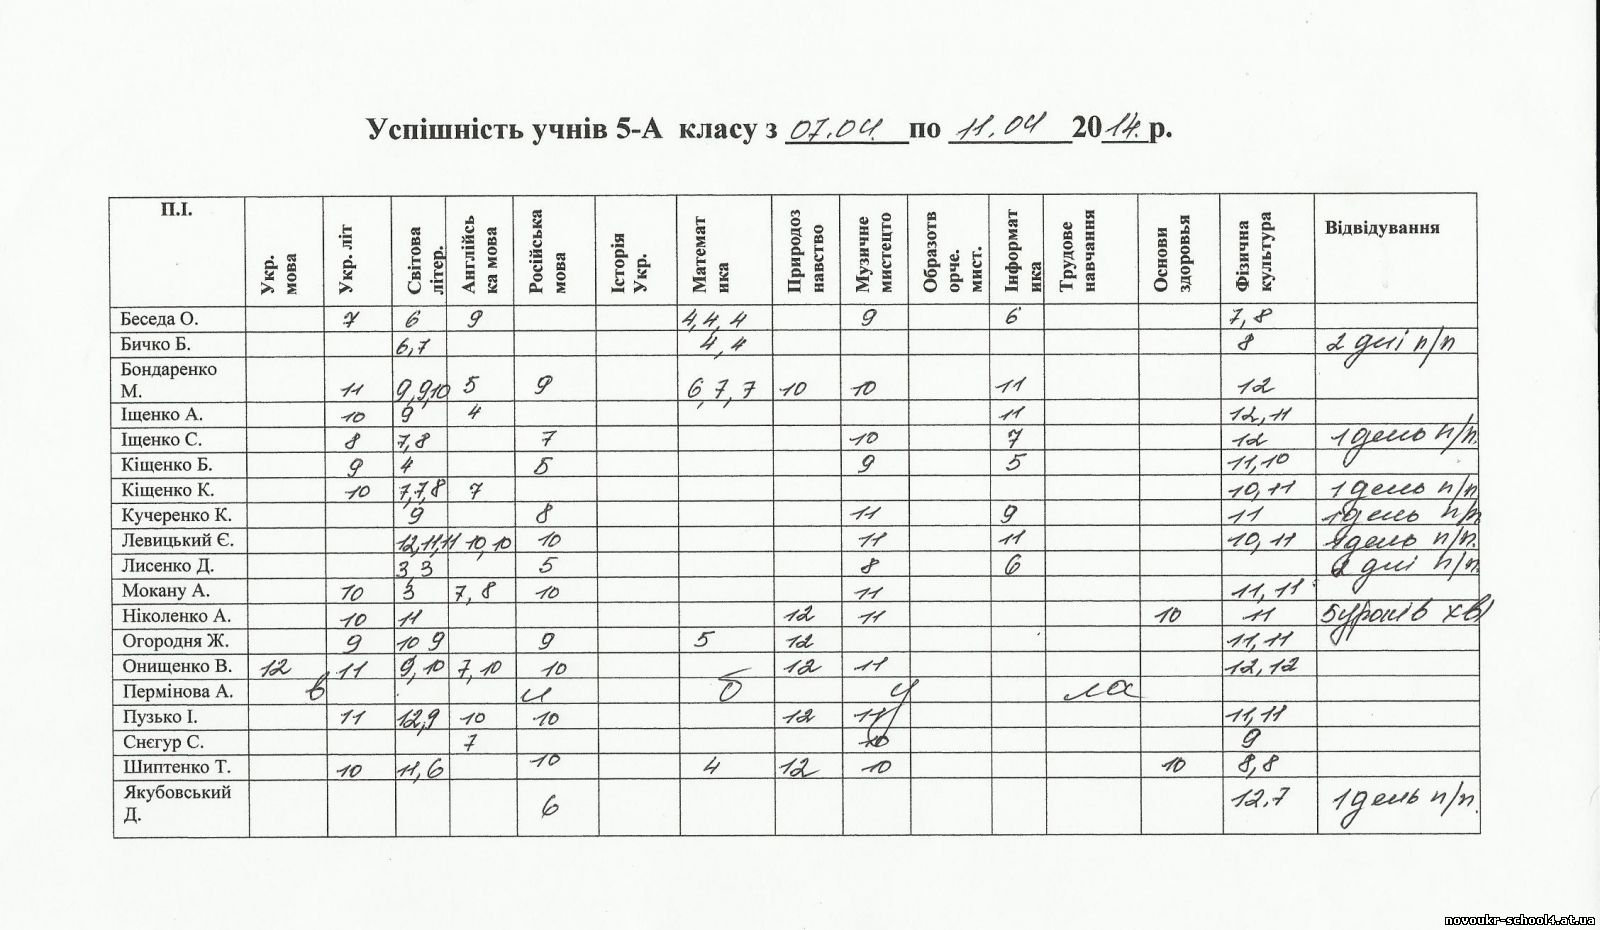 Успішність учнів 5-А класу з 07.04. по 11.04 2014.р.
П.І. Укр. мова Укр. літ Світова літер. Англійсь ка мова Російська мова Історія Укр. Математ ика Природоз навство Музичне мистецто Образотв орче. мист. Інформат ика Трудове навчання Основи здоровья Фізична культура Відвідування
Беседа О. 7 6 9 4,4,4 9 6 7,8
Бичко Б. 6,7 4,4 8 2 дні п/п
Бондаренко
М. 11 9,9,10 5 9 6,7,7 10 10 11 12
Іщенко А. 10 9 4 11 12,11
Іщенко С. 8 7,8 7 10 7 12 1 день п/п.
Кіщенко Б. 9 4 5 9 5 11,10
Кіщенко К. 10 7,7,8 7 10,11 1 день п/п
Кучеренко К. 9 8 11 9 11 1 день п/п
Левицький Є. 12,11,11 10,10 10 11 11 10,11 1 день п/п.
Лисенко Д. 3 3 5 8 6 2 дні п/п.
Мокану А. 10 3 7,8 10 11 11,11
Ніколенко А. 10 11 12 11 10 11 5 уроків хв
Огородня Ж. 9 10 9 9 5 12 11,11
Онищенко В. 12 11 9,10 7,10 10 12 11 12,12
Пермінова А. в и б у ла
Пузько І. 11 12,9 10 10 12 11 11,11
Снєгур С. 7 10 9
Шиптенко Т. 10 11,6 10 4 12 10 10 8,8
Якубовський
Д. 6 12,7 1 день п/п.
novoukr-school4.at.ua